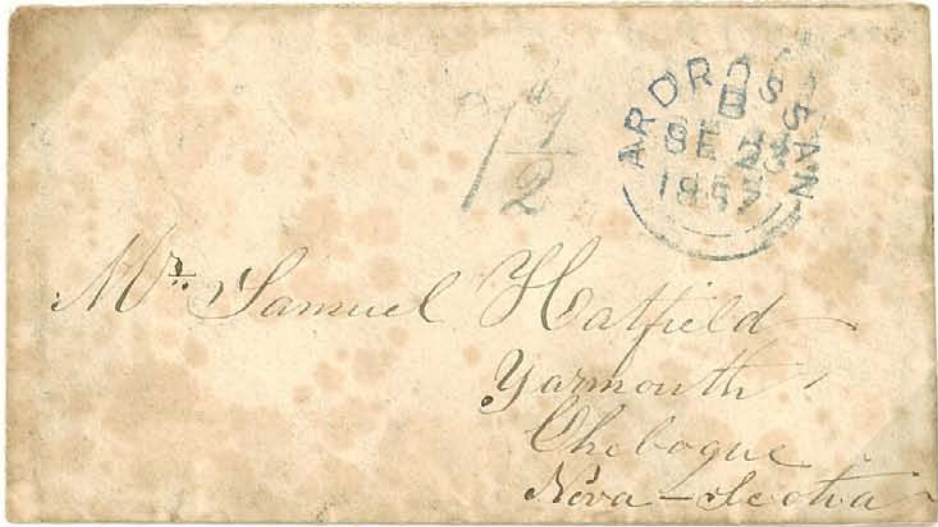 7 1/2
ARDROSSAN
B
SE 23
1857
Mr. Samuel Hatfield
Yarmouth
Chebogue
Nova-Scotia